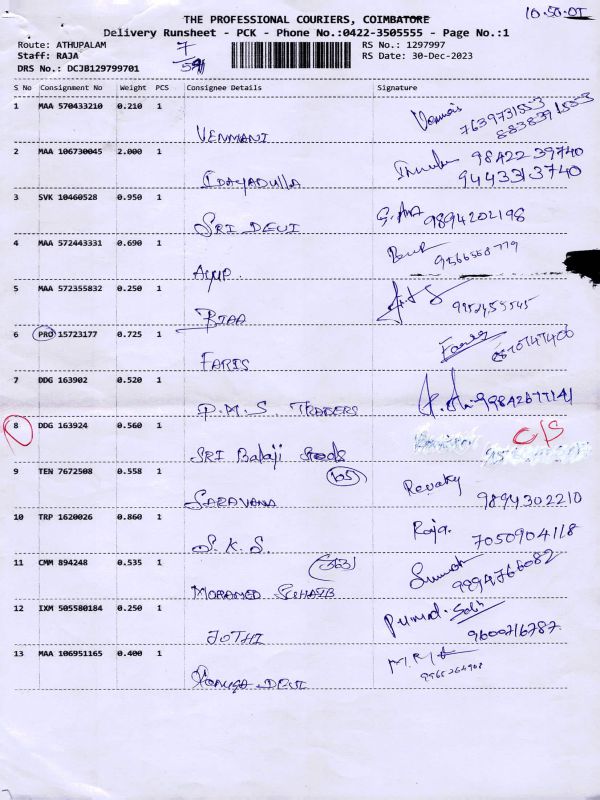 THE PROFESSIONAL COURIERS, COIMBATORE
10.50.01
Delivery Runsheet - PCK - Phone No.:0422-3505555 - Page No.:1
Route: ATHUPALAM 7 RS No.: 1297997
Staff: RAJA RS Date: 30-Dec-2023
DRS No.: DCJB129799701
S No Consignment No Weight PCS Consignee Details Signature
1 MAA 570433210 0.210 1 VENMANI 7639731553
8838391553
2 MAA 106730045 2.000 1 IDAYADULLA 98422 39740
9443313740
3 SVK 10460528 0.950 1 SRI DEVI 9894202198
4 MAA 572443331 0.690 1 AYUP. 9566558779
5 MAA 572355832 0.250 1
6 PRO 15723177 0.725 1 FARIS
7 DDG 163902 0.520 1 P.M.S. TRADERS
8 DDG 163924 0.560 1 SRI Balaji C/S
9 TEN 7672508 0.558 1 SARAVANA Revathy
9894302210
10 TRP 1620026 0.860 1 S.K.S. Raja. 7050904118
11 CMM 894248 0.535 1 MOHAMED 9994766082
12 IXM 505580184 0.250 1 JOTHI 9600716787
13 MAA 106951165 0.400 1 DEVI